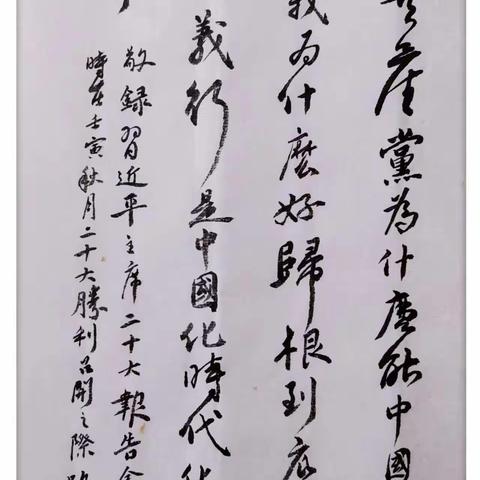 產黨為什麼能中國
義为什麼好歸根到底
義行是中國化時代化
敬錄習近平主席二十大報告
時在壬寅秋月二十大勝利召開之際